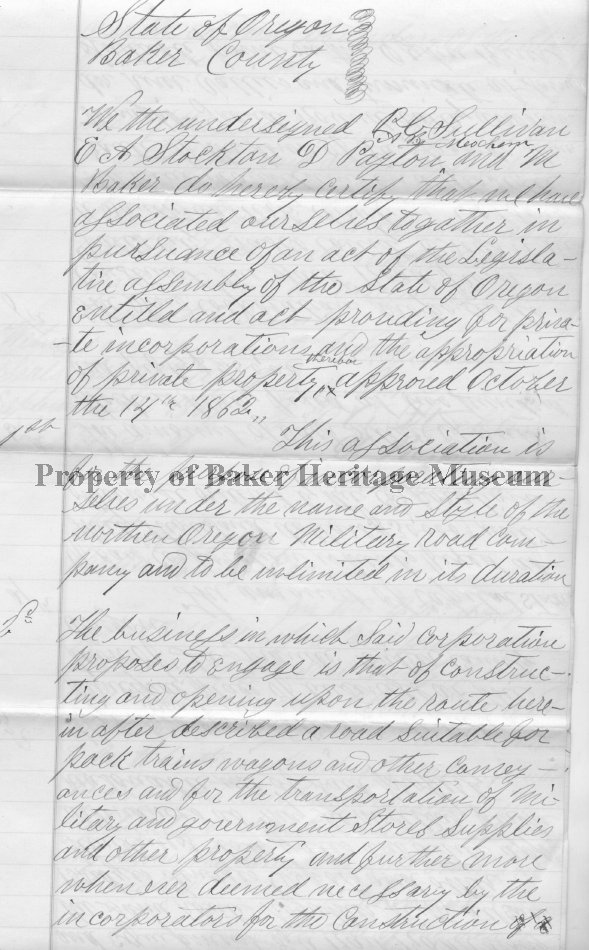 State of Oregon
Baker County
We the undersigned P G Sullivan
E A Stockton D Paxton and M
Baker do hereby certify that we have
associated ourselves togather in
pursuance of an act of the Legisla-
tive assembly of the State of Oregon
Entitld and act providing for priva-
te incorporations and the appropriation
of private property therefor approved October
the 14th 1862,,
1st This association is
for the purpose of incorporating our-
Property of Baker Heritage Museum
selves under the name and style of the
northen Oregon Military road com-
pany and to be unlimited in its duration
2d The business in which Said corporation
proposes to engage is that of construc-
ting and opening upon the route here-
in after described a road suitable for
pack trains wagons and other convey-
ances and for the transportation of mi-
litary and government Stores Supplies
and other property and further more
when ever deemed necessary by the
incorporators for the Construction of